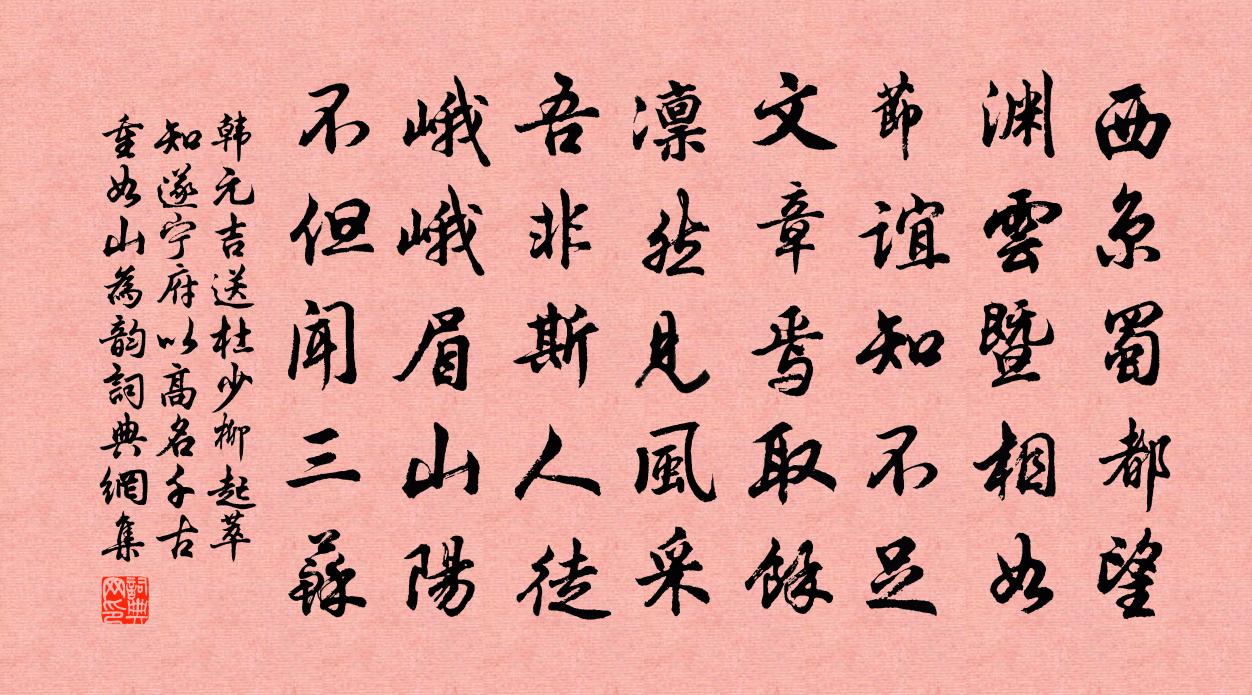 西京蜀都望
渊雲暨相如
節誼知不足
文章焉取餘
凛然見風采
吾非斯人徒
峨峨眉山陽
不但聞三蘇
韩元吉送杜少柳起萃
知遂宁府以高名千古
重如山為韵詞典網集
詞典
网印